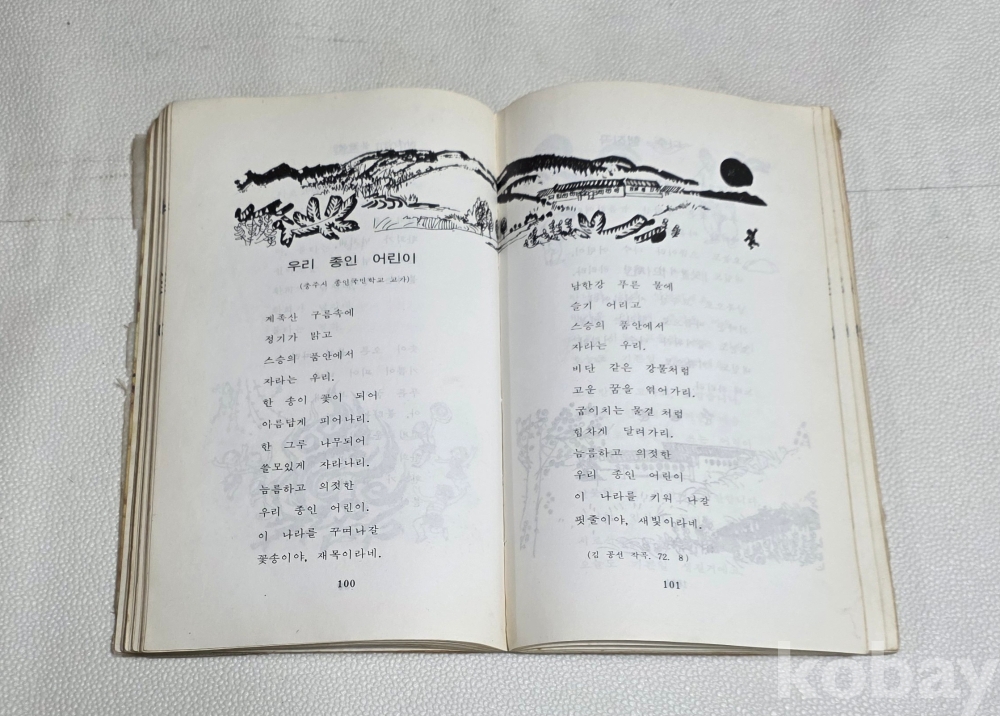 우리 종인 어린이
(충주시 종인국민학교 교가)
계족산 구름속에
정기가 밝고
스승의 품안에서
자라는 우리.
한 송이 꽃이 되어
아름답게 피어나리.
한 그루 나무되어
쓸모있게 자라나리.
늠름하고 의젓한
우리 종인 어린이.
이 나라를 꾸며나갈
꽃송이야, 재목이라네.
100
남한강 푸른 물에
슬기 어리고
스승의 품안에서
자라는 우리.
비단 같은 강물처럼
고운 꿈을 엮어가리.
굽이치는 물결 처럼
힘차게 달려가리.
늠름하고 의젓한
우리 종인 어린이
이 나라를 키워 나갈
핏줄이야, 새빛이라네.
(김 공선 작곡. 72. 8)
101
kobay